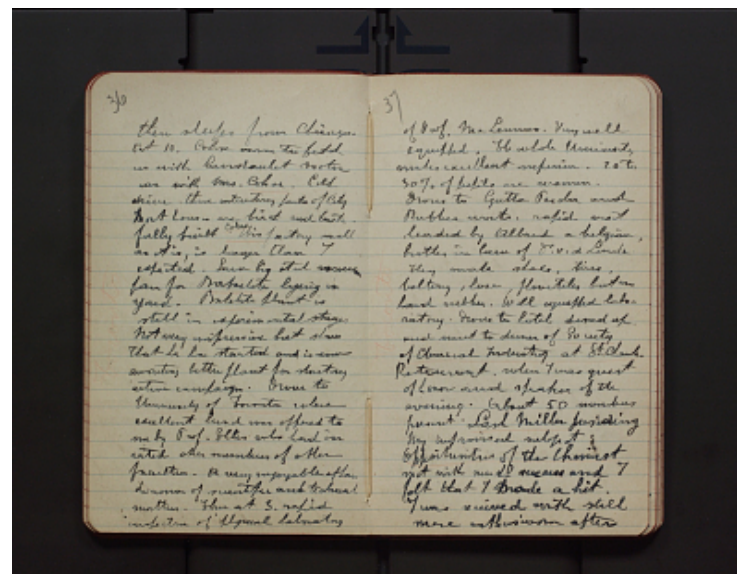 36
then sleeps from Chicago.
Oct 10. Cohoe came to fetch
us with Landaulet motor
car with Mrs. Cohoe. Cold
drive thru outskirts parts of City
but Homes are brick and beauti-
fully built. Cohoe's factory small
as it is, is larger than I
expected. Saw big steel
for Bakelite lying in
yard. Bakelite plant is
still in experimental stage.
Not very impressive but shows
that he has started and is now
awaiting better plant for starting
active campaign. Drove to
University of Toronto where
excellent lunch was offered to
me by Prof. Ellis who had in-
vited other members of other
faculties. A very enjoyable affair
discussion of scientific and technical
matters. Then at 3. rapid
inspection of physical laboratory
37
of Prof. McLennan. Very well
equipped. The whole University
makes excellent impression. 20 to
30% of pupils are women.
Drove to Gutta Percha and
Rubber works. rapid visit
leaded by Allard a belgian,
brother in law of
They make shoes, tires,
belting, hose, floortiles but no
hard rubber. Well equipped labo-
ratory. Drove to hotel
and went to dinner of Society
of Chemical Industry at St. Charles
Restaurant, when I was guest
of honor and speaker of the
evening. About 50 members
present. Lash Miller presiding
My improvised subject:
Opportunities of the Chemist
met with much success and I
felt that I made a hit.
I was received with still
more enthusiasm after